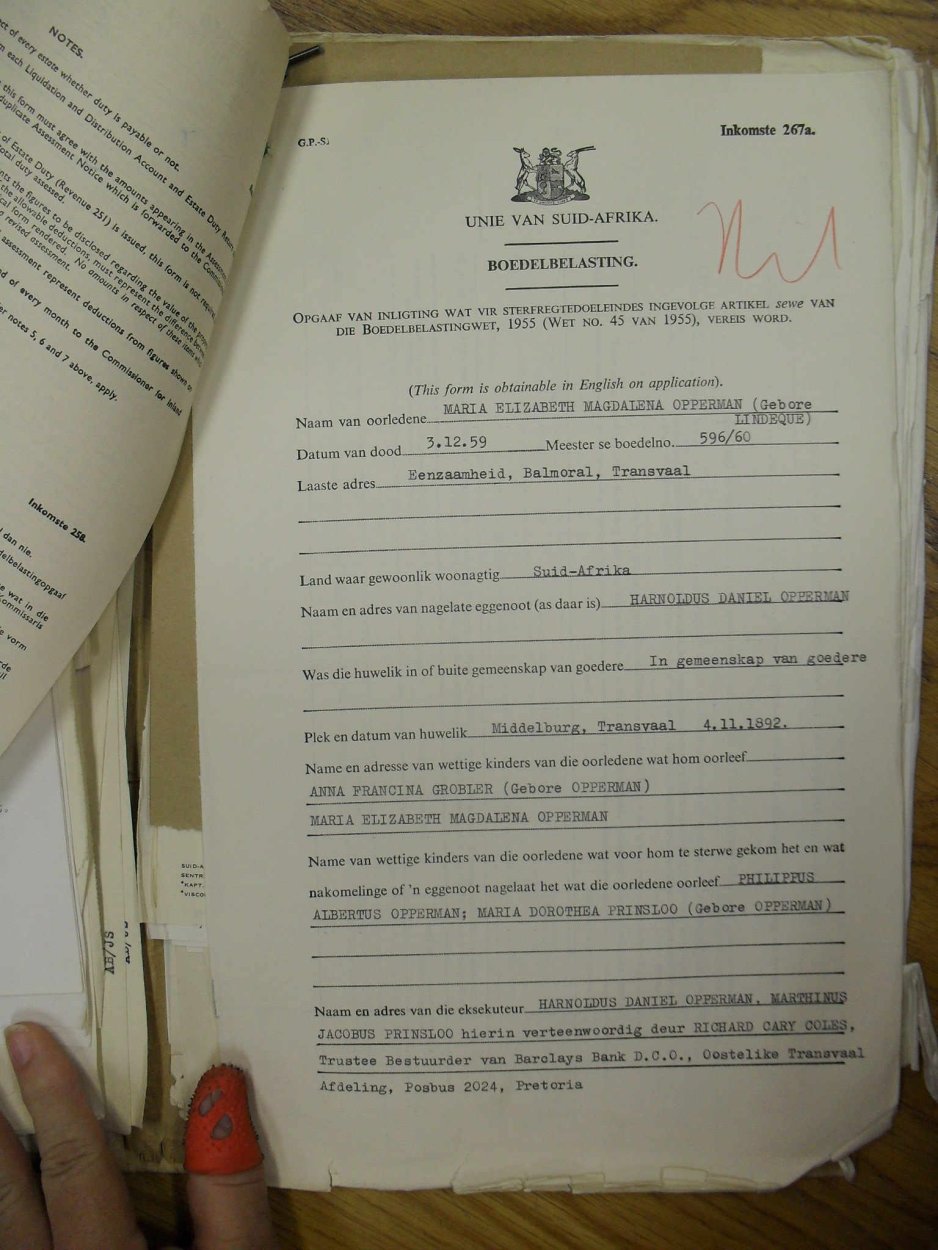 NOTES.
ct of every estate whether duty is payable or not.
m each Liquidation and Distribution Account and Estate Duty Return
this form must agree with the amounts appearing in the Assessment
duplicate Assessment Notice which is forwarded to the Commi
of Estate Duty (Revenue 251) is issued, this form is not require
total duty assessed.
nts the figures to be disclosed regarding the value of the
the allowable deductions, must represent the difference betwe
cal form rendered. No amounts in respect of these items
revised assessment.
assessment represent deductions from figures shown
nd of every month to the Commissioner for Inland
er notes 5, 6 and 7 above, apply.
Inkomste 258.
dan nie.
delbelastingopgaaf
e wat in die
Kommissaris
ie vorm
rde
G.P.-S.
Inkomste 267a.
UNIE VAN SUID-AFRIKA.
Nil
BOEDELBELASTING.
OPGAAF VAN INLIGTING WAT VIR STERFREGTEDOELEINDES INGEVOLGE ARTIKEL sewe VAN
DIE BOEDELBELASTINGWET, 1955 (WET NO. 45 VAN 1955), VEREIS WORD.
(This form is obtainable in English on application).
Naam van oorledene MARIA ELIZABETH MAGDALENA OPPERMAN (Gebore
LINDEQUE)
Datum van dood 3.12.59 Meester se boedelno. 596/60
Laaste adres Eenzaamheid, Balmoral, Transvaal
Land waar gewoonlik woonagtig Suid-Afrika
Naam en adres van nagelate eggenoot (as daar is) HARNOLDUS DANIEL OPPERMAN
Was die huwelik in of buite gemeenskap van goedere In gemeenskap van goedere
Plek en datum van huwelik Middelburg, Transvaal 4.11.1892.
Name en adresse van wettige kinders van die oorledene wat hom oorleef
ANNA FRANCINA GROBLER (Gebore OPPERMAN)
MARIA ELIZABETH MAGDALENA OPPERMAN
Name van wettige kinders van die oorledene wat voor hom te sterwe gekom het en wat
nakomelinge of 'n eggenoot nagelaat het wat die oorledene oorleef PHILIPPUS
ALBERTUS OPPERMAN; MARIA DOROTHEA PRINSLOO (Gebore OPPERMAN)
Naam en adres van die eksekuteur HARNOLDUS DANIEL OPPERMAN. MARTHINUS
JACOBUS PRINSLOO hierin verteenwoordig deur RICHARD CARY COLES,
Trustee Bestuurder van Barclays Bank D.C.O., Oostelike Transvaal
Afdeling, Posbus 2024, Pretoria
SUID-A
SENTR
*KAPT.
*VISCO
AB/JS